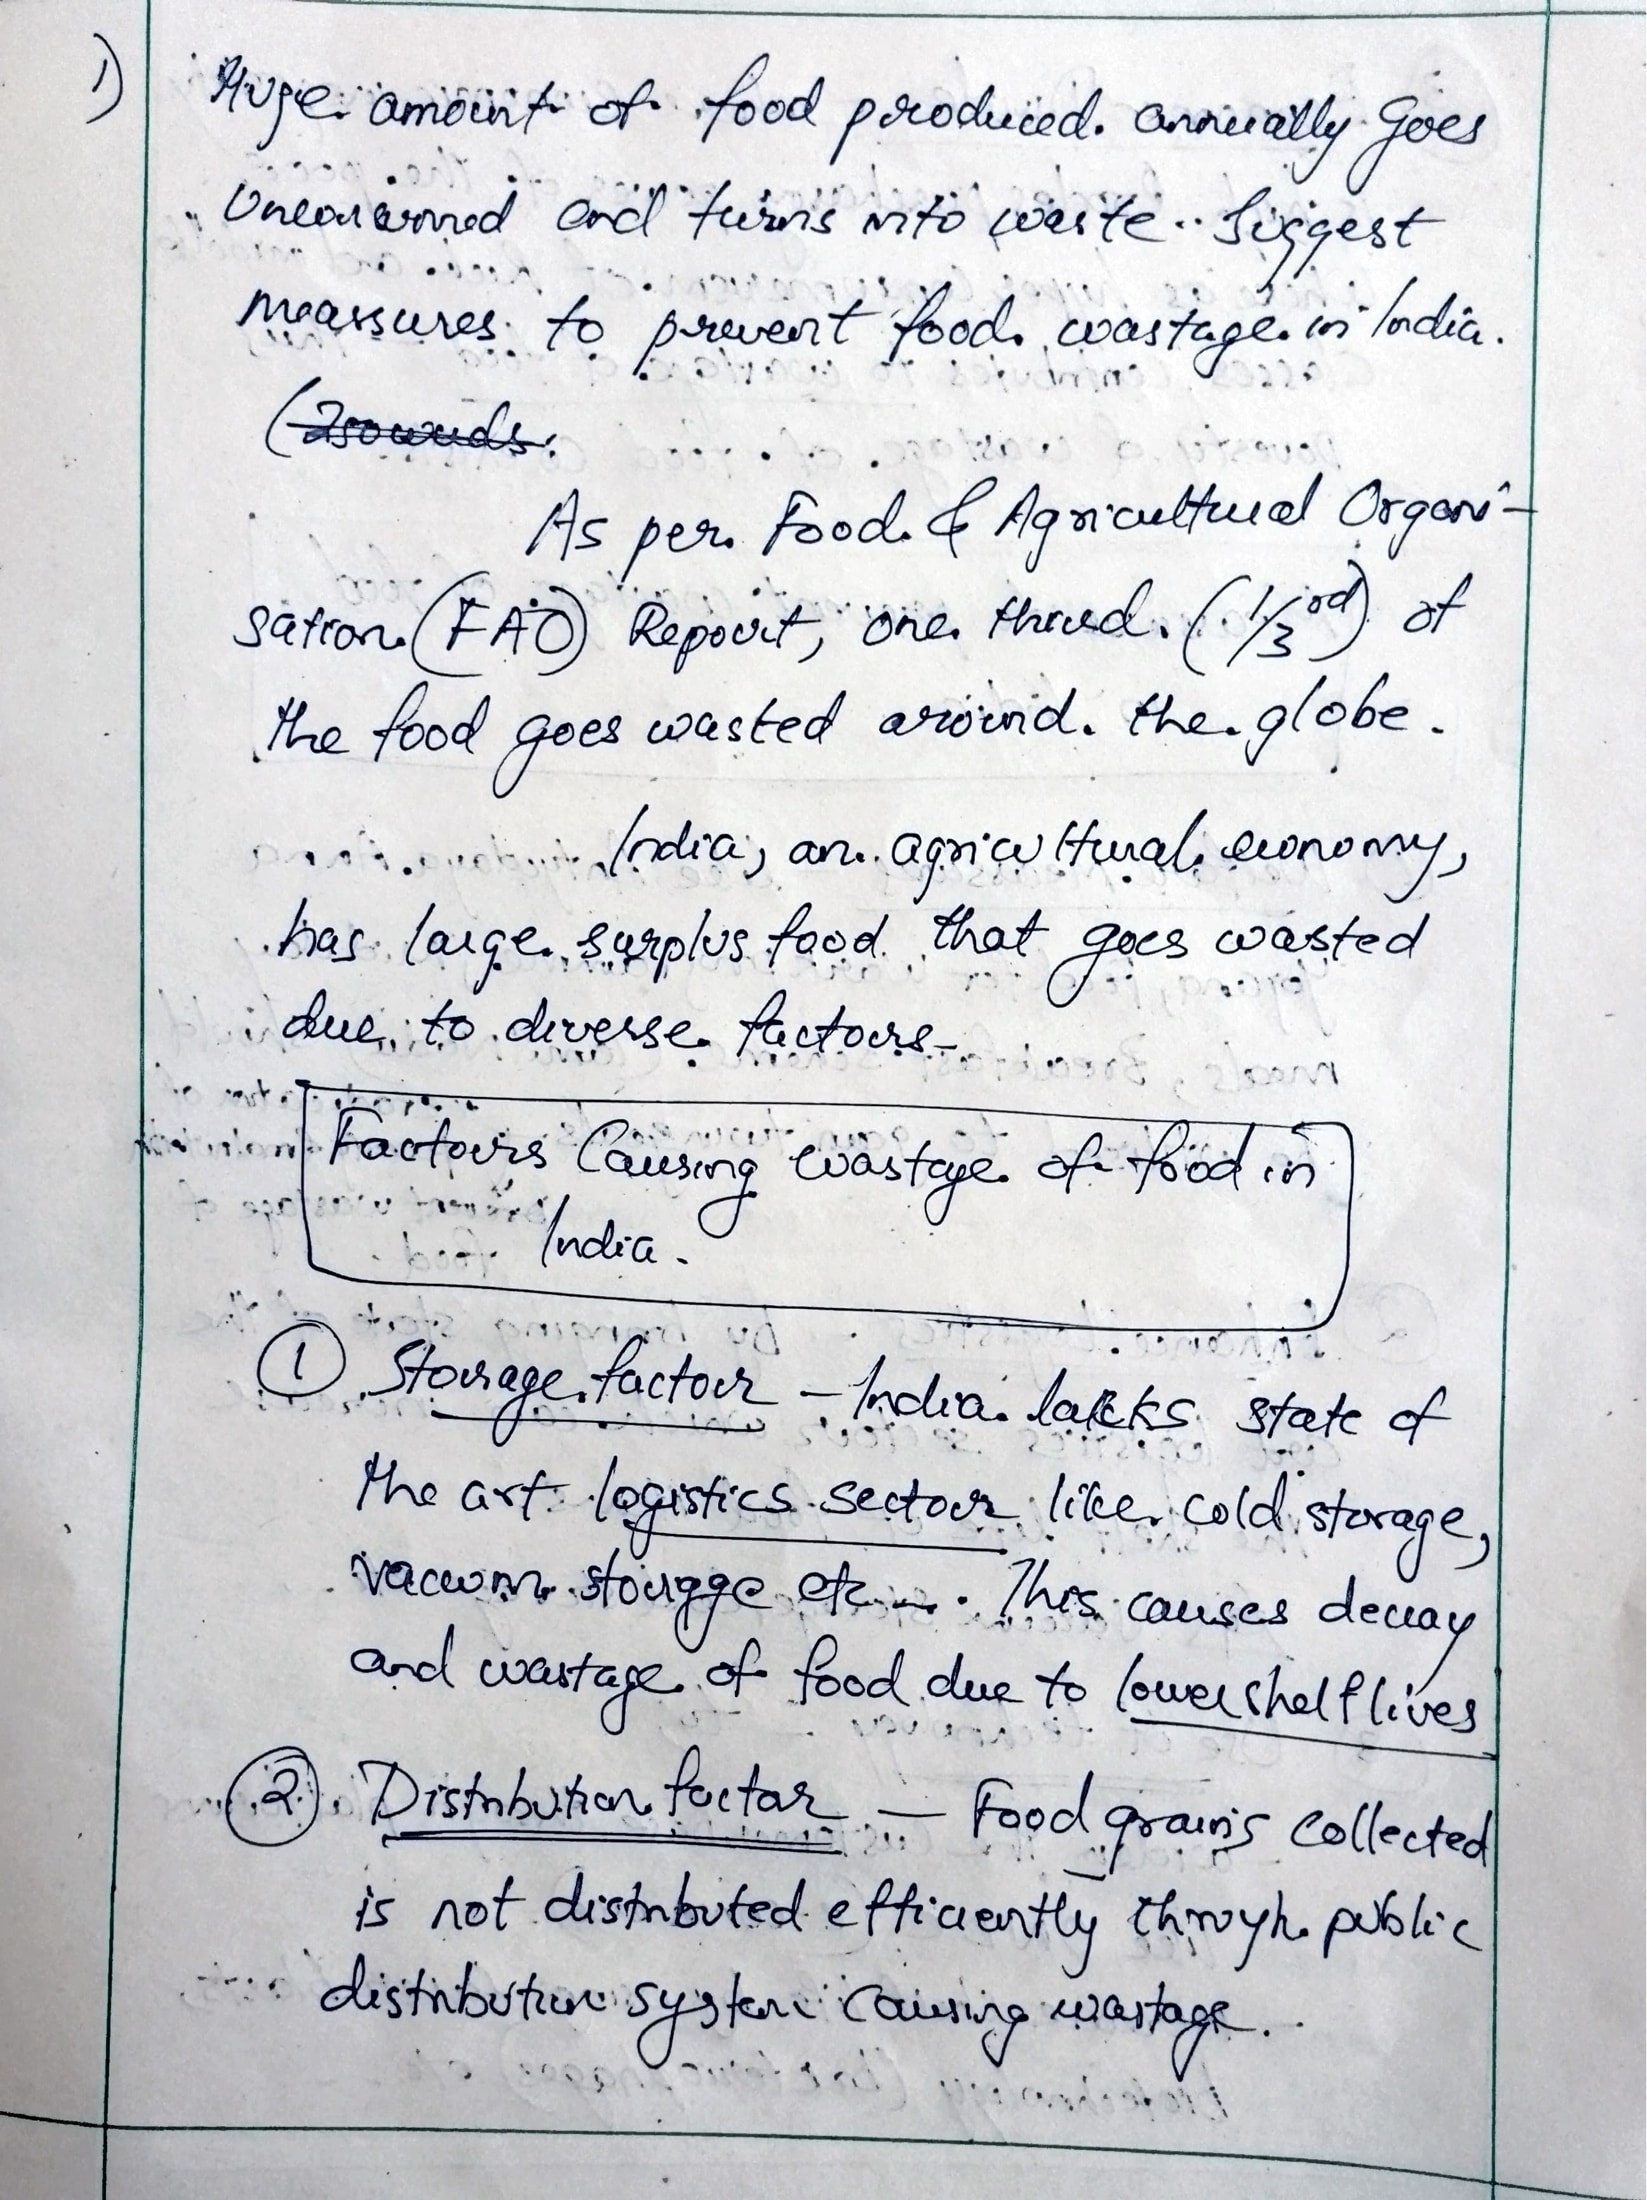 1) Huge amount of food produced annually Goes
and turns into waste. Suggest
measures to prevent food wastage in India.
(250 words.
As per Food & Agricultural Organi-
sation (FAO) Report, one third (1/3rd) of
the food goes wasted around the globe.
India, an agricultural economy,
has large surplus food that goes wasted
due to diverse factors-
Factors Causing wastage of food in
India.
1 Storage factor - India lacks state of
the art logistics sector like cold storage,
vacuum storage etc... This causes decay
and wastage of food due to lower shelf lives
2 Distribution factor - Food grains collected
is not distributed efficiently through public
distribution system causing wastage.